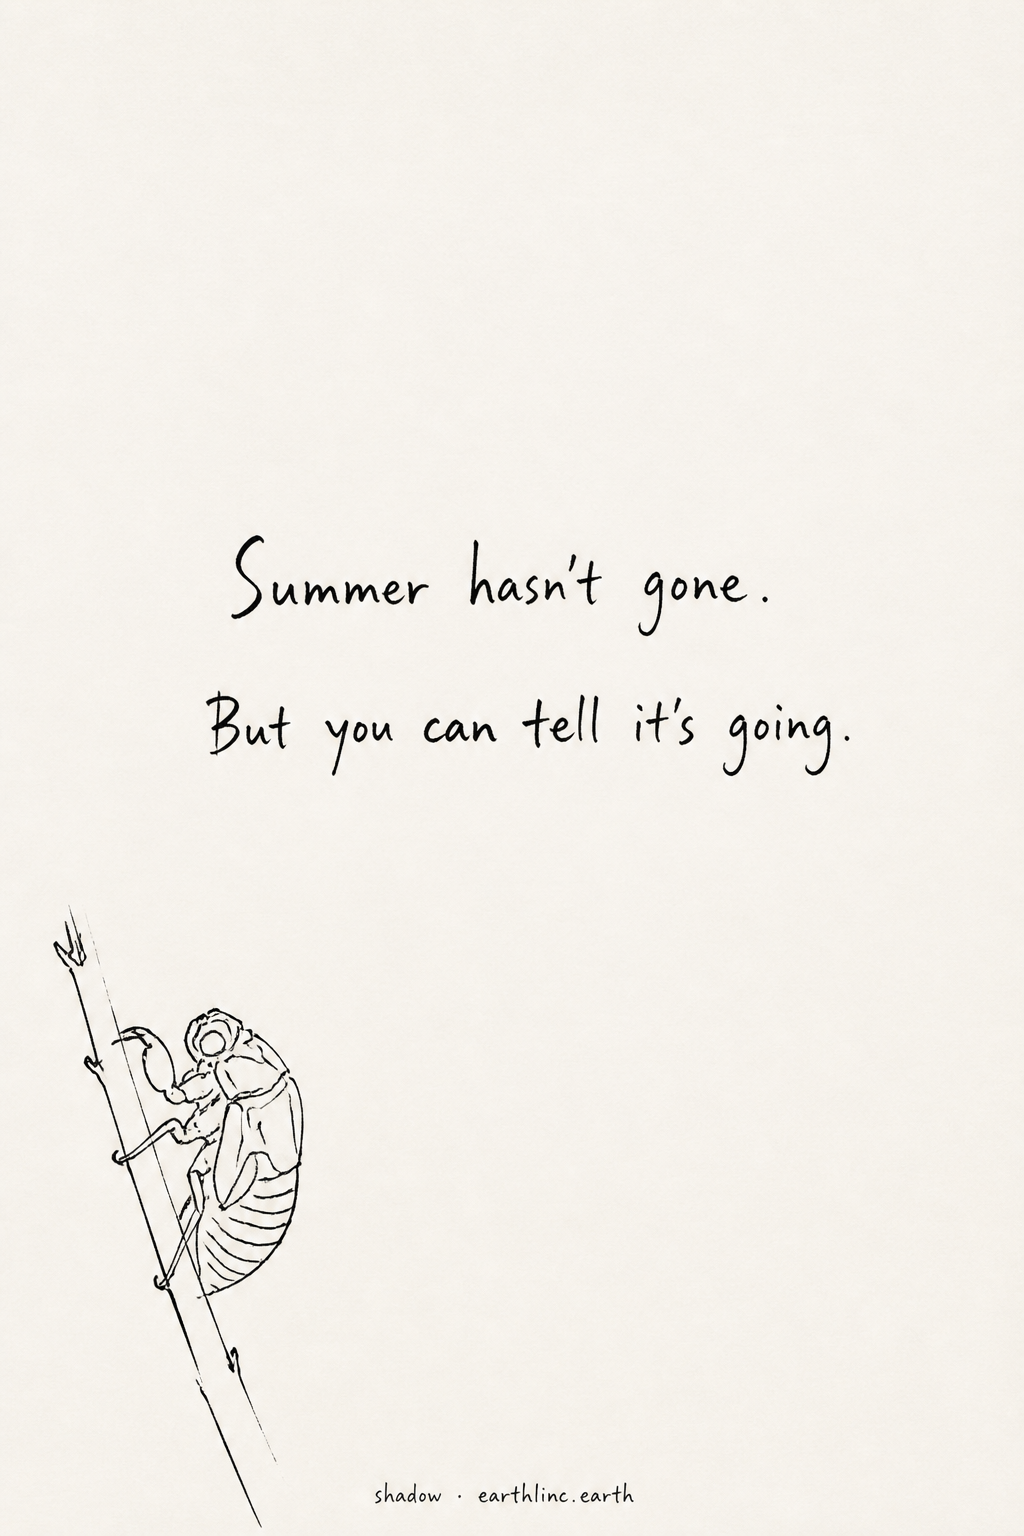 Summer hasn't gone.
But you can tell it's going.
shadow · earthlinc.earth